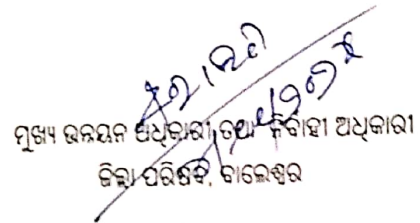 ମୁଖ୍ୟ ଉନ୍ନୟନ ଅଧିକାରୀ ତଥା ନିର୍ବାହୀ ଅଧିକାରୀ
ଜିଲ୍ଲା ପରିଷଦ, ବାଲେଶ୍ୱର